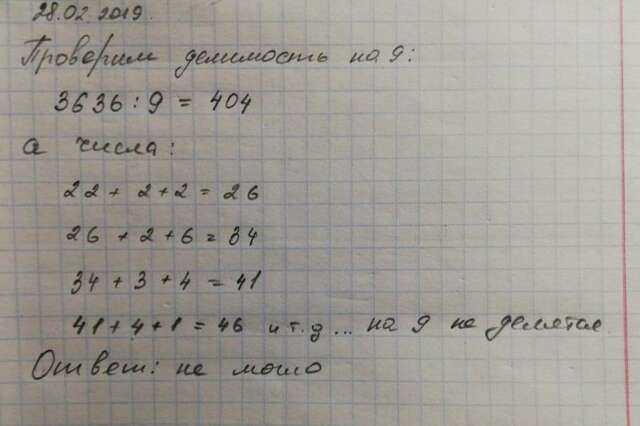 28.02.2019.
Проверим делимость на 9:
3636 : 9 = 404
а числа:
22 + 2 + 2 = 26
26 + 2 + 6 = 34
34 + 3 + 4 = 41
41 + 4 + 1 = 46 и т.д ... на 9 не делятся
Ответ: не могло